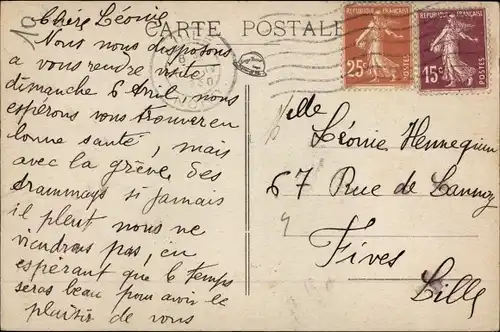 10
CARTE POSTALE
Chère Léonie
Nous nous disposons
a vous rendre visite
dimanche 6 Avril, nous
espérons vous trouver en
bonne santé, mais
avec la grève des
trammays si jamais
il pleut nous ne
viendrons pas, en
espérant que le temps
seras beau pour avoir le
plaisir de vous
REPUBLIQUE FRANÇAISE
25c
POSTES
REPUBLIQUE FRANÇAISE
15c
POSTES
Melle
Léonie Hennequin
67 Rue de Lannoy
Fives
Lille